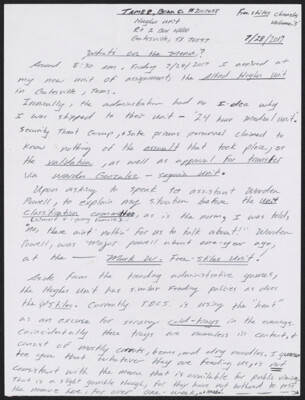 TAMER, Brian C. #2012657
Hughes Unit
Rt 2 Box 4400
Gatesville, TX 76597
Free Stiles Chronicles
Volume 5
7/28/2017
What's on the Menu?
Around 8:30 am. Friday 7/28/2017 I arrived at
my new unit of assignment, the Alfred Hughes Unit
in Gatesville, Texas.
Ironically, the administration had no idea why
I was shipped to their Unit — "24 hour medical unit."
Security Threat Group, & State prisons personnel claimed to
know nothing of the assault that took place, or
the validation, as well as approval for transfer
via Warden Gonzalez - Seguin Unit.
Upon asking to speak to assistant Warden
Powell, to explain my situation before the Unit
Classification committee, as is the norm, I was told,
"No, there ain't nothin' for us to talk about!" Warden
Powell, was Major Powell about one-year ago,
at the — Mark W. Free Stiles Unit!
Aside from the trending administrative games,
the Hughes Unit has similar feeding policies as does
the Stiles. Currently TDCJ is using the "heat"
as an excuse for serving cold-trays in the evenings.
Coincidentally these trays are meatless in content, &
consist of mostly carrots, beans, and dry noodles. I guarantee
you that whatever they are feeding us, is not
consistent with the menu that is available for public viewing.
That is a slight possible though, for they have not bothered to post
the menu here, for over one-week,